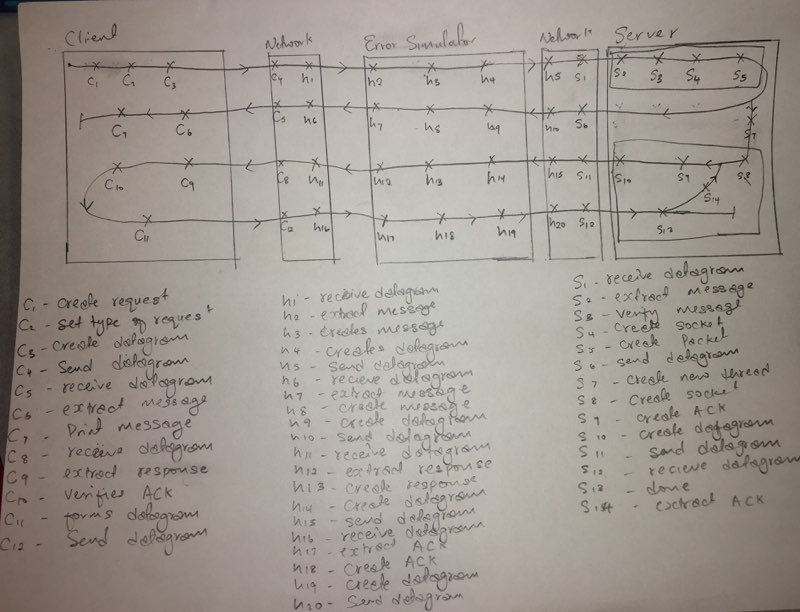 Client
Network
Error Simulator
Network
Server
C1 C2 C3 C4 h1 h2 h3 h4 h5 S1 S2 S3 S4 S5
C7 C6 C5 h6 h7 h8 h9 h10 S6 S7
C10 C9 C8 h11 h12 h13 h14 h15 S11 S10 S9 S8
S14
C11 C12 h16 h17 h18 h19 h20 S12 S13
C1 - Create request
C2 - set type of request
C3 - Create datagram
C4 - Send datagram
C5 - receive datagram
C6 - extract message
C7 - Print message
C8 - receive datagram
C9 - extract response
C10 - verifies ACK
C11 - forms datagram
C12 - Send datagram
h1 - receive datagram
h2 - extract message
h3 - Creates message
h4 - Creates datagram
h5 - Send datagram
h6 - recieve datagram
h7 - extract message
h8 - create message
h9 - create datagram
h10 - Send datagram
h11 - receive datagram
h12 - extract response
h13 - Create response
h14 - Create datagram
h15 - send datagram
h16 - receive datagram
h17 - extract ACK
h18 - Create ACK
h19 - Create datagram
h20 - Send datagram
S1 - receive datagram
S2 - extract message
S3 - verify message
S4 - Create socket
S5 - Create Packet
S6 - send datagram
S7 - Create new thread
S8 - Create socket
S9 - create ACK
S10 - Create datagram
S11 - send datagram
S12 - recieve datagram
S13 - done
S14 - extract ACK